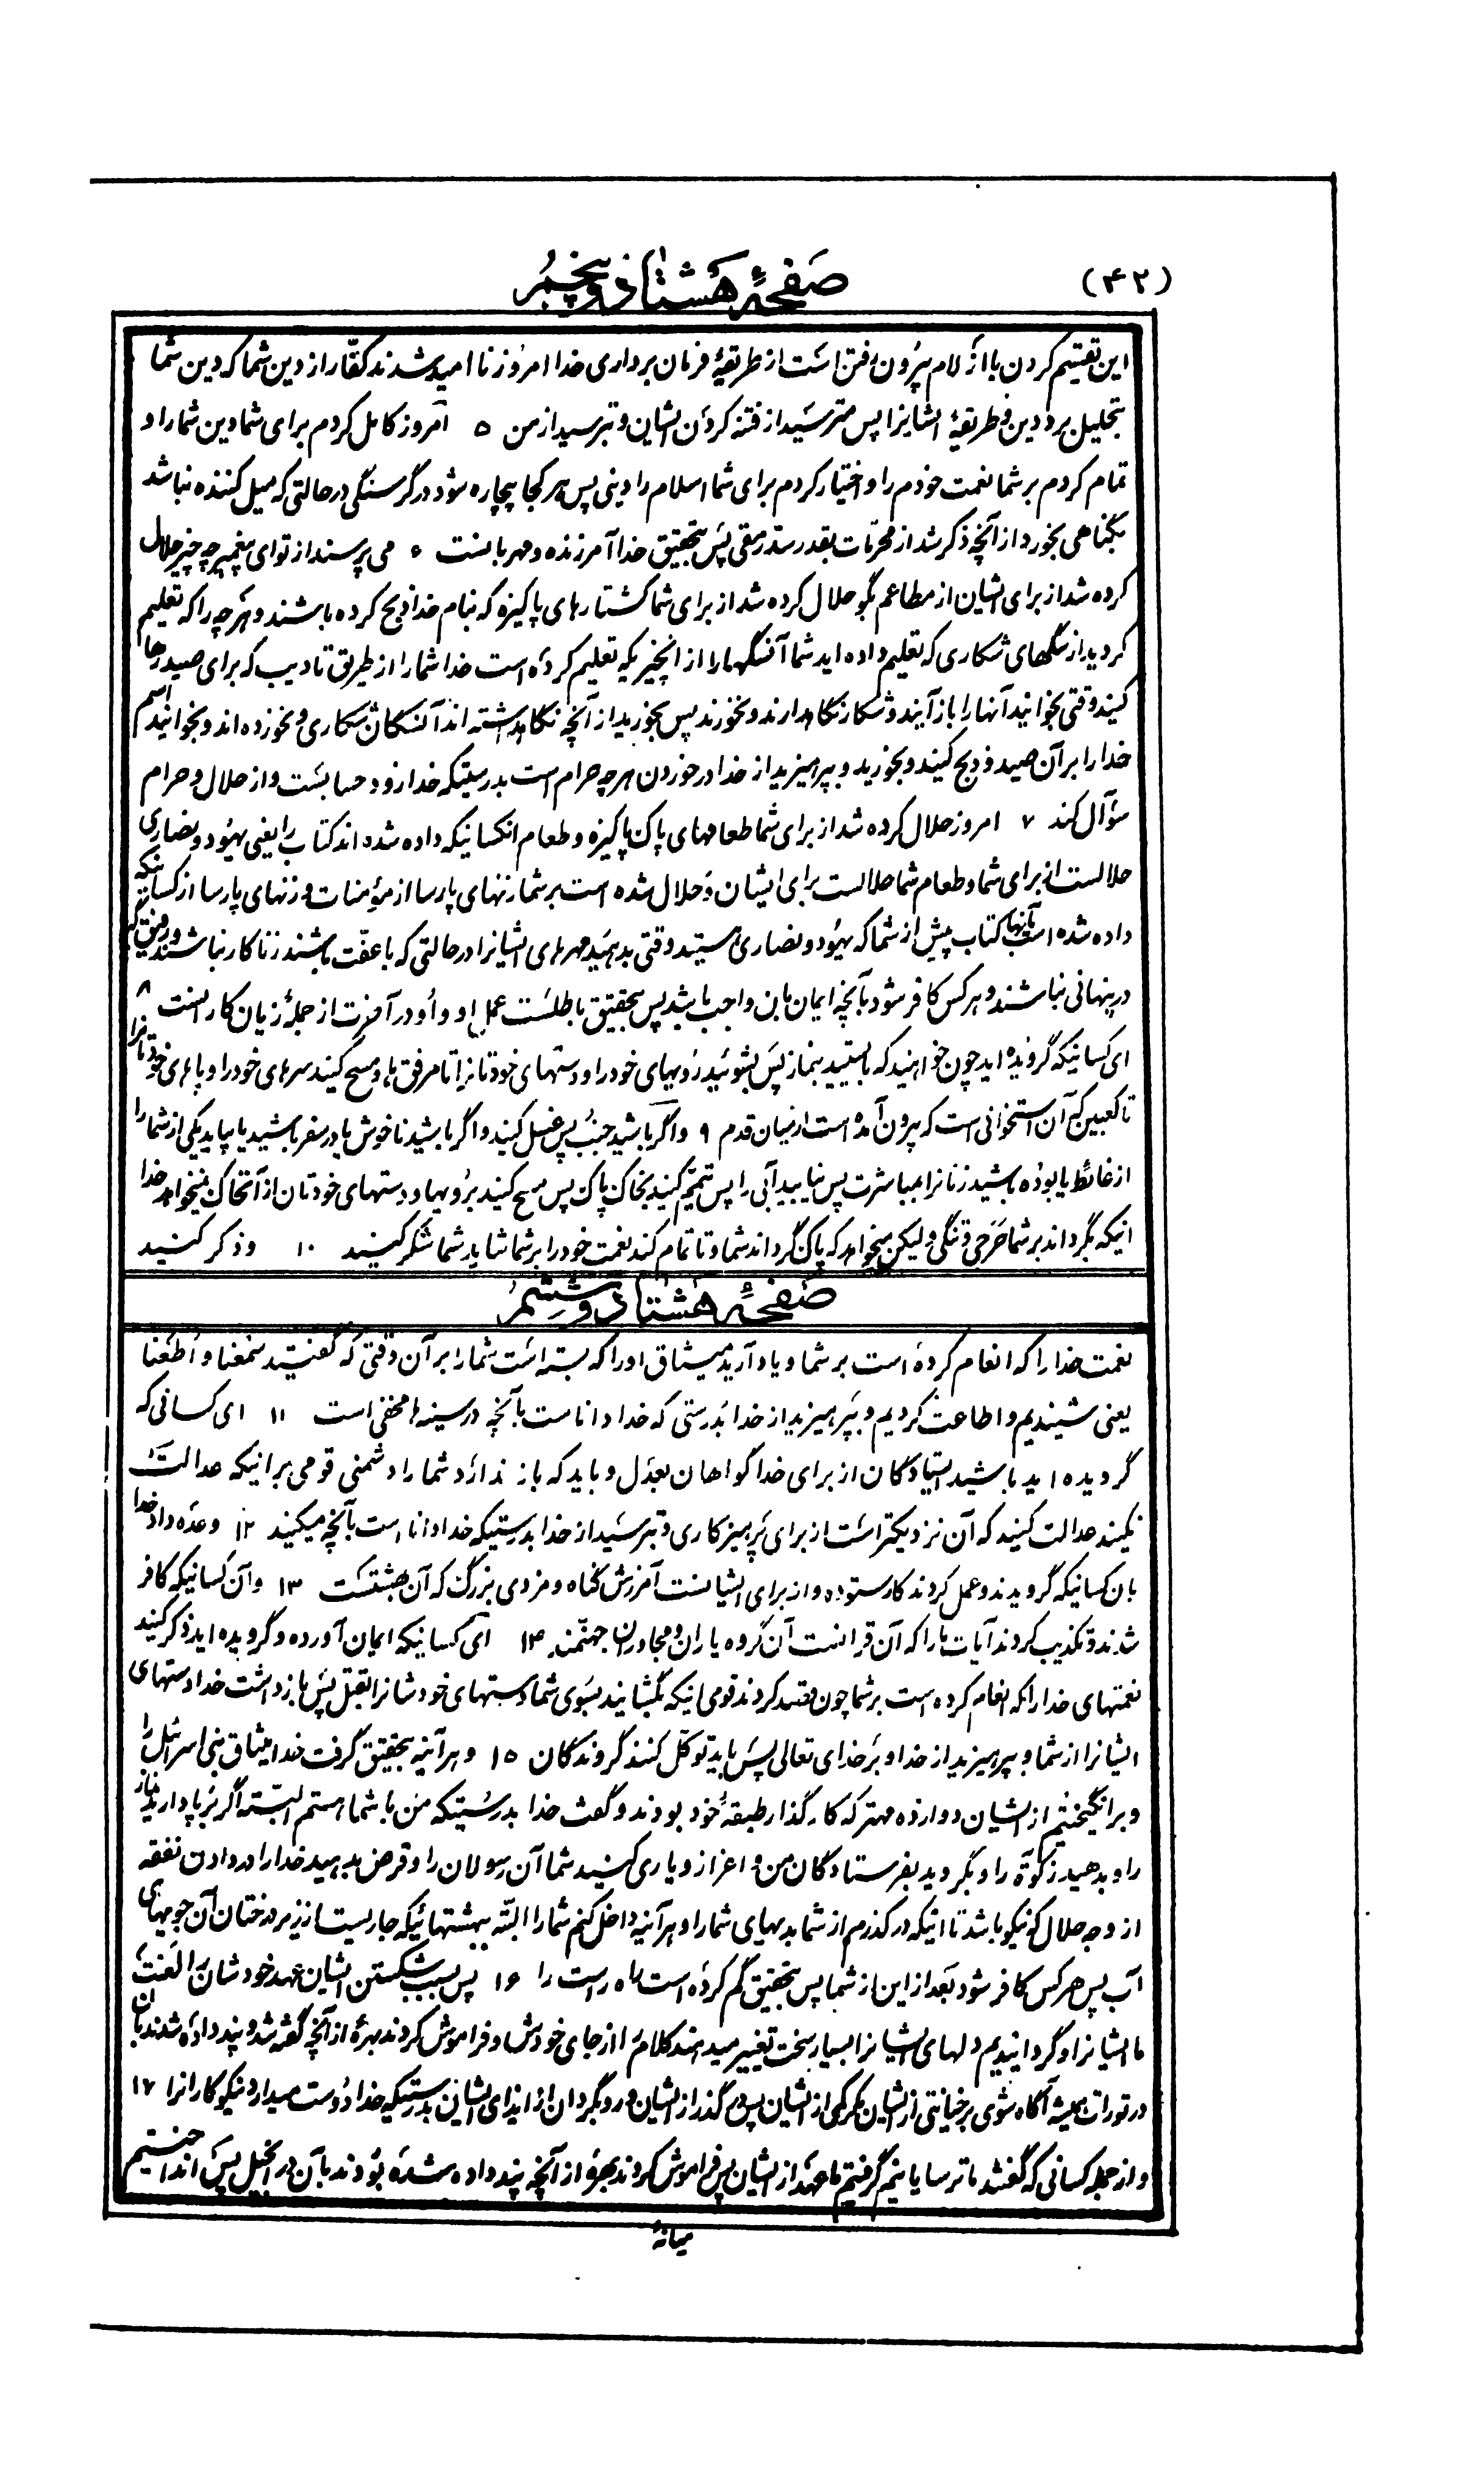 (۴۲)
صفحهٔ هشتاد و پنجم
این تقسیم کردن با ازلام بیرون رفتن است از طریقهٔ فرمان برداری خدا امروز نا امید شدند کفّار از دین شما که دین شما
بتحلیل برد دین و طریقهٔ ایشانرا پس مترسید از فتنه کردن ایشان و بترسید از من ۵ امروز کامل کردم برای شما دین شما را و
تمام کردم بر شما نعمت خودم را و اختیار کردم برای شما اسلام را دینی پس هر کجا بیچاره شود در گرسنگی در حالتی که میل کننده نباشد
بگناهی بخورد از آنچه ذکر شد از محرّمات بقدر سدّ رمقی پس بتحقیق خدا آمرزنده و مهربانست ۶ می پرسند از تو ای پیغمبر چه چیز حلال
کرده شد از برای ایشان از مطاعم بگو حلال کرده شد از برای شما کشتارهای پاکیزه که بنام خدا ذبح کرده باشند و هر چه را که تعلیم
کردید از سگهای شکاری که تعلیم داده اید شما آنسگهارا از انچیزیکه تعلیم کرده است خدا شما را از طریق تادیب که برای صید رها
کنید وقتی بخوانید آنها را باز آیند و شکار نگاهدارند و نخورند پس بخورید از آنچه نگاهداشته اند آنسگان شکاری و نخورده اند و بخوانید اسم
خدا را بر آن صید و ذبح کنید و بخورید و بپرهیزید از خدا در خوردن هر چه حرام است بدرستیکه خدا زود حسابست و از حلال و حرام
سؤال کند ۷ امروز حلال کرده شد از برای شما طعامهای پاک پاکیزه و طعام انکسانیکه داده شده اند کتاب را یعنی یهود و نصاری
حلالست از برای شما و طعام شما حلالست برای ایشان و حلال شده است بر شما زنهای پارسا از مؤمنات و زنهای پارسا از کسانیکه
داده شده است بآنها کتاب پیش از شما که یهود و نصاری هستند وقتی بدهید مهرهای ایشانرا در حالتی که با عفّت باشند زناکار نباشند و رفیق گیر
در پنهانی نباشند و هر کس کافر شود بآنچه ایمان بان واجب باشد پس بتحقیق باطلست عمل او و او در آخرت از جملهٔ زیان کارانست ۸
ای کسانیکه گرویده اید چون خواهید که بایستید بنماز پس بشوئید رویهای خود را و دستهای خودتانرا تا مرفق ها و مسح کنید سرهای خود را و پاهای خودتانرا
تا کعبین که آن استخوانی است که بیرون آمده است از میان قدم ۹ و اگر باشید جنب پس غسل کنید و اگر باشید ناخوش یا در سفر باشید یا بیاید یکی از شما را
از غائط یا بوده باشید زنانرا بمباشرت پس نیابید آبی را پس تیمّم کنید بخاک پاک پس مسح کنید برویها و دستهای خودتان از آنخاک نمیخواهد خدا
اینکه بگرداند بر شما حرجی و تنگی و لیکن میخواهد که پاک گرداند شما و تا تمام کند نعمت خود را بر شما شاید شما شکر کنید ۱۰ و ذکر کنید
صفحهٔ هشتاد و ششم
نعمت خدا را که انعام کرده است بر شما و یاد آرید میثاق او را که بسته است شما را بر آن وقتی که گفتید سمعنا و اطعنا
یعنی شنیدیم و اطاعت کردیم و بپرهیزید از خدا بدرستی که خدا داناست بآنچه در سینه ها مخفی است ۱۱ ای کسانی که
گرویده اید باشید ایستادگان از برای خدا گواهان بعدل و باید که باز ندارد شما را دشمنی قومی بر اینکه عدالت
نکنید عدالت کنید که آن نزدیکتر است از برای پرهیزکاری و بترسید از خدا بدرستیکه خدا دانا است بآنچه میکنید ۱۲ وعده داد خدا
بان کسانیکه گرویدند و عمل کردند کار ستوده و از برای ایشانست آمرزش گناه و مزدی بزرگ که آن بهشتست ۱۳ و آن کسانیکه کافر
شدند و تکذیب کردند آیات ما را که آن قرانست آن گروه یاران و مجاوران جهنّمند ۱۴ ای کسانیکه ایمان آورده و گرویده اید ذکر کنید
نعمتهای خدا را که انعام کرده است بر شما چون قصد کردند قومی اینکه بگشایند بسوی شما دستهای خودشانرا بقتل پس بازداشت خدا دستهای
ایشانرا از شما و بپرهیزید از خدا و بر خدای تعالی پس باید توکّل کنند گروندگان ۱۵ و هر آینه بتحقیق گرفت خدا میثاق بنی اسرائیل را
و برانگیختیم از ایشان دوازده مهتر که کارگذار طبقهٔ خود بودند و گفت خدا بدرستیکه من با شما هستم البتّه اگر برپا دارید نماز
را و بدهید زکوة را و بگروید بفرستادگان من و اعزاز و یاری کنید شما آن رسولان را و قرض بدهید خدا را در دادن نفقه
از وجه حلال که نیکو باشد تا اینکه در گذرم از شما بدیهای شما را و هر آینه داخل کنم شما را البتّه ببهشتهائیکه جاریست از زیر درختان آن جویهای
آب پس هر کس کافر شود بعد از این از شما پس بتحقیق گم کرده است راه راست را ۱۶ پس بسبب شکستن ایشان عهد خودشان را لعنت
ما ایشانرا و گردانیدیم دلهای ایشانرا بسیار سخت تغییر میدهند کلام را از جای خودش و فراموش کردند بهرهٔ از آنچه گفته شد و پند داده شدند بان
در تورات همیشه آگاه شوی بر خیانتی از ایشان مگر کمی از ایشان پس در گذر از ایشان و رو بگردان از ایذای ایشان بدرستیکه خدا دوست میدارد نیکوکارانرا ۱۷
و از جمله کسانی که گفتند ما ترسایانیم گرفتیم ما عهد از ایشان پس فراموش کردند بهرهٔ از آنچه پند داده شده بودند بآن در انجیل پس انداختیم
میانهٔ